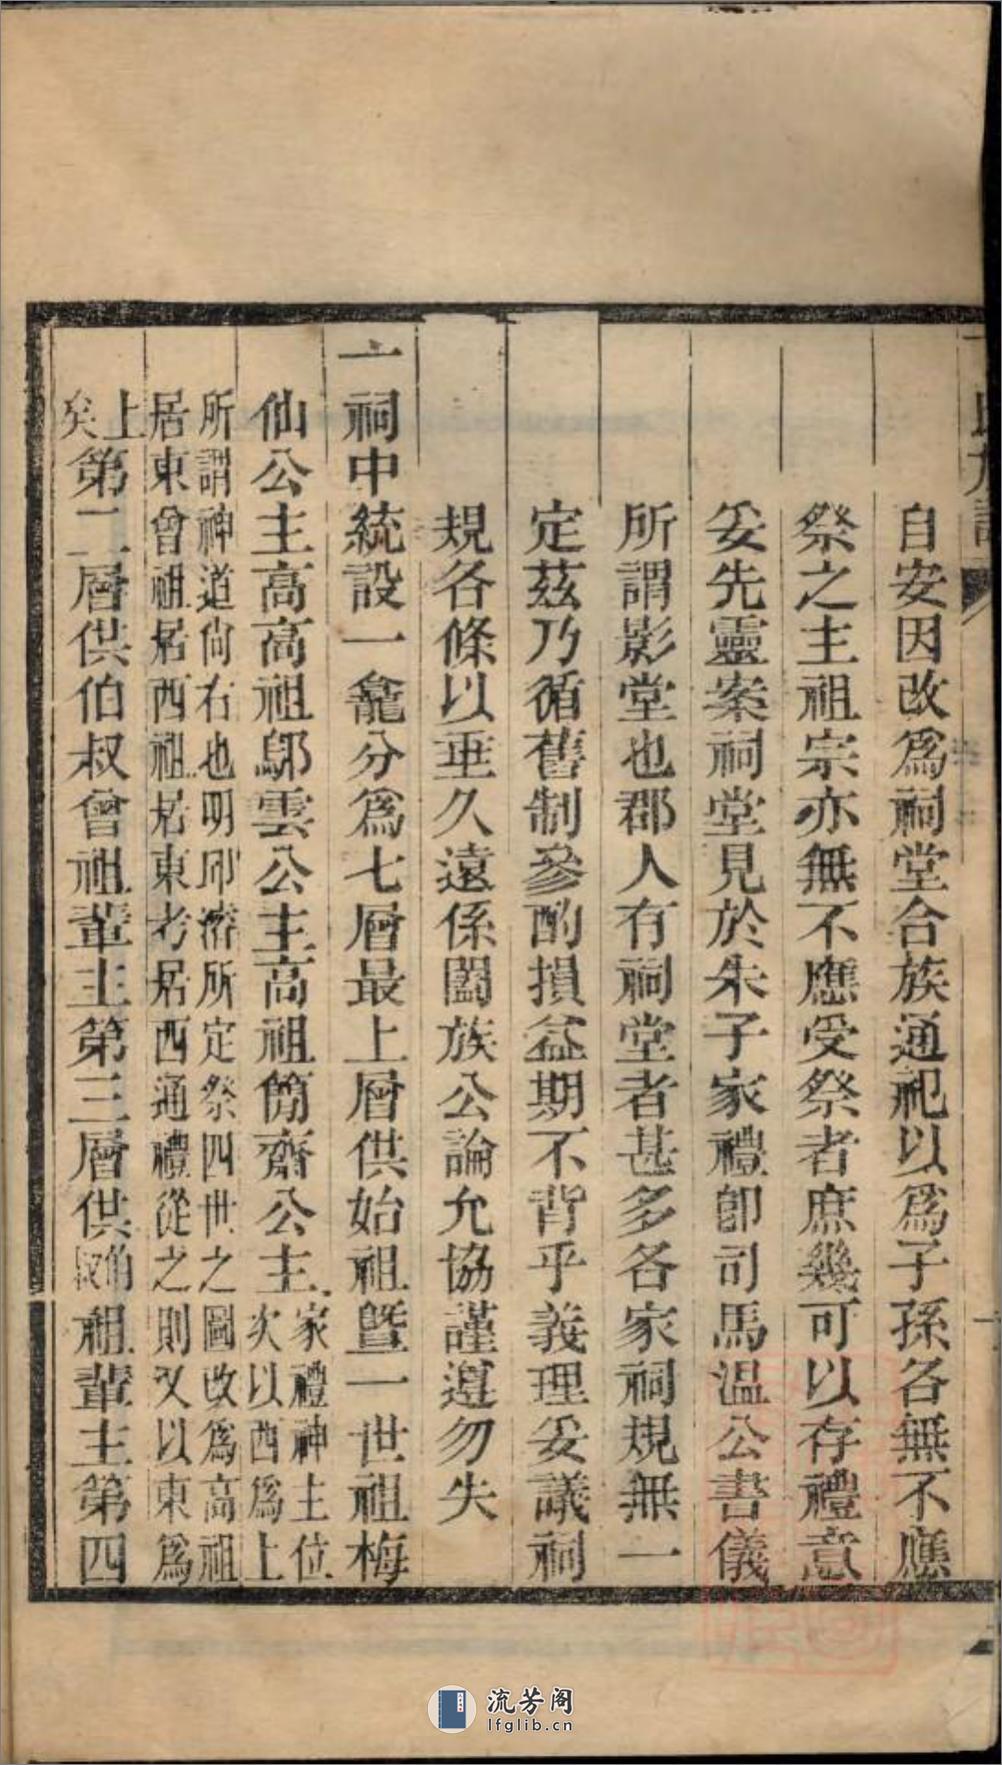 自安因改爲祠堂合族通祀以爲子孫各無不應
祭之主祖宗亦無不應受祭者庶幾可以存禮意
妥先靈案祠堂見於朱子家禮卽司馬溫公書儀
所謂影堂也郡人有祠堂者甚多各家祠規無一
定茲乃循舊制參酌損益期不背乎義理妥議祠
規各條以垂久遠係闔族公論允協謹遵勿失
一祠中統設一龕分爲七層最上層供始祖曁一世祖梅
仙公主高高祖鄔雲公主高祖簡齋公主家禮神主位次以西爲上
所謂神道尚右也明邱濬所定祭四世之圖改爲高祖居東曾祖居西祖居東考居西通禮從之則又以東爲
上矣第二層供伯叔曾祖輩主第三層供伯叔祖輩主第四
流芳阁
lfglib.cn